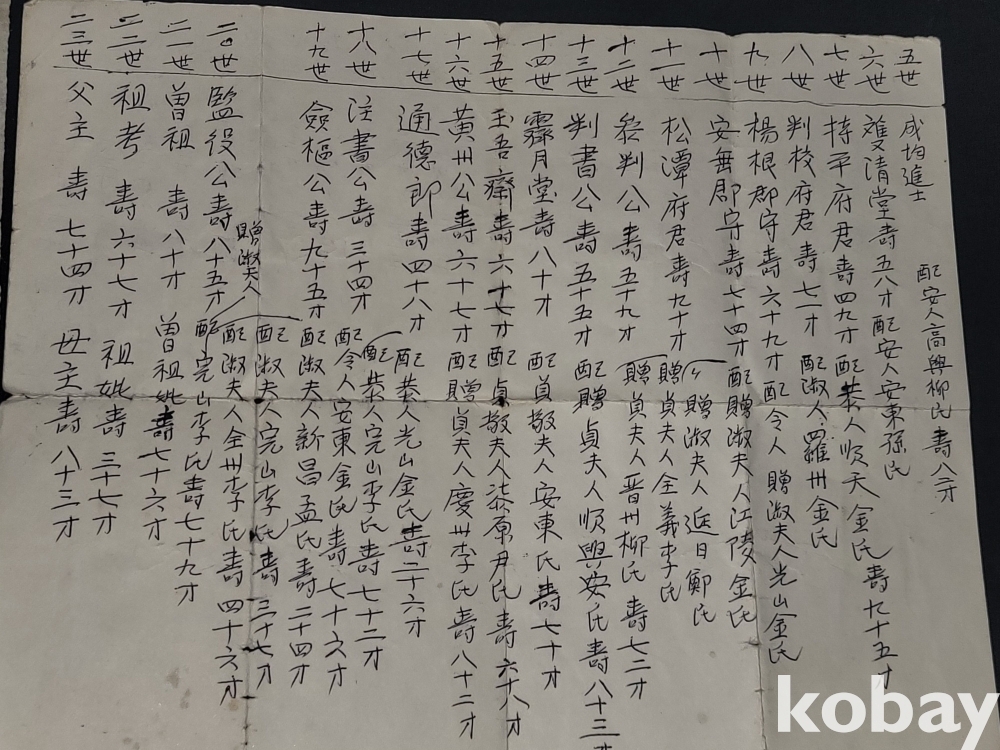 五世 成均進士 配安人高興柳氏 壽八三才
六世 雙清堂壽五八才 配安人安東孫氏
七世 持平府君壽四九才 配恭人順天金氏壽九十五才
八世 判校府君壽七一才 配淑人羅州金氏
九世 楊根郡守壽六十九才 配令人 贈淑夫人光山金氏
十世 安無郡守壽七十四才 配贈淑夫人江陵金氏
〃 贈淑夫人延日鄭氏
十一世 松潭府君壽九十才 贈貞夫人全義李氏
十二世 參判公壽五十九才 贈貞夫人晋州柳氏 壽七二才
十三世 判書公壽五十五才 配贈貞夫人順興安氏壽八十三才
十四世 霽月堂壽八十才 配貞敬夫人安東氏壽七十才
十五世 玉吾齋壽六十七才 配貞敬夫人漆原尹氏壽六十八才
十六世 黃州公壽六十七才 配贈貞夫人慶州李氏壽八十二才
十七世 通德郎壽四十八才 配恭人光山金氏壽二十六才
配恭人完山李氏壽七十二才
十八世 注書公壽三十四才 配令人安東金氏壽七十六才
十九世 僉樞公壽九十五才 配淑夫人新昌孟氏壽二十四才
配淑夫人完山李氏壽三十七才
配淑夫人全州李氏壽四十六才
二〇世 監役公壽八十五才 贈淑夫人 配完山李氏壽七十九才
二一世 曽祖 壽八十才 曽祖妣壽七十六才
二二世 祖考 壽六十七才 祖妣壽三十七才
二三世 父主 壽七十四才 母主壽八十三才
kobay